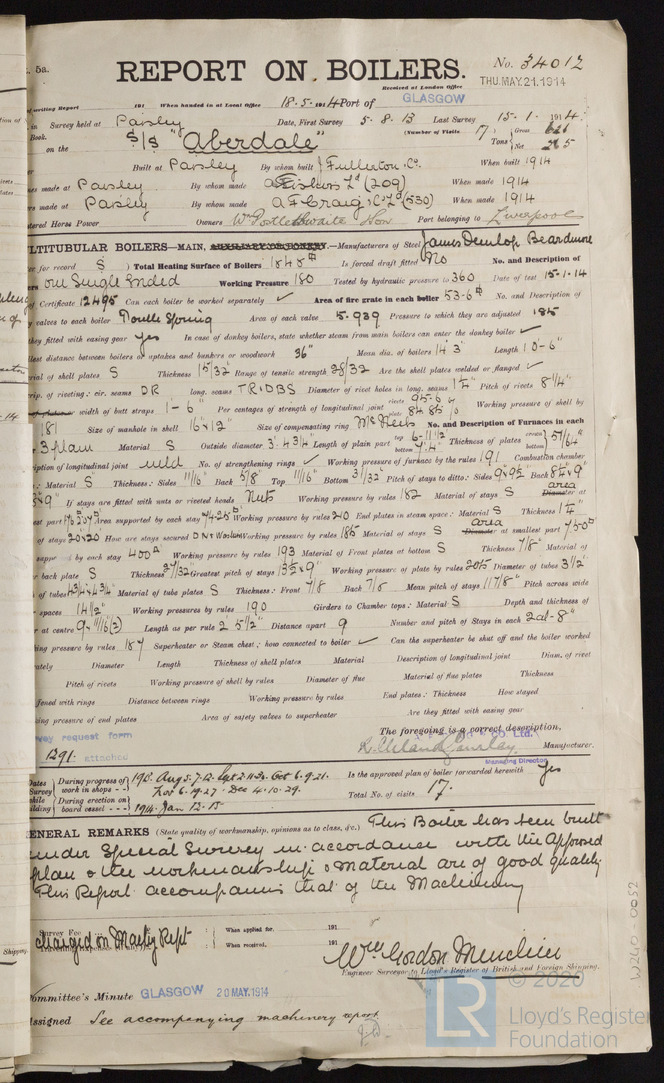 5a.
REPORT ON BOILERS.
No. 34012
Received at London Office THU. MAY. 21. 1914
writing Report 191 When handed in at Local Office 18. 5. 1914 Port of GLASGOW
in Survey held at Paisley Date, First Survey 5. 8. 13 Last Survey 15. 1. 1914
Book. (Number of Visits 17)
on the S/S "Aberdale" Tons Gross Net
Built at Paisley By whom built J Fullerton & Co. When built 1914
es made at Paisley By whom made When made 1914
rs made at Paisley By whom made A. F. Craig & Co Ld (530) When made 1914
stered Horse Power Owners Wm Postlethwaite & Son Port belonging to Liverpool
LTITUBULAR BOILERS—MAIN, AUXILIARY OR DONKEY.—Manufacturers of Steel James Dunlop Beardmore
er for record S Total Heating Surface of Boilers 1848 Is forced draft fitted No No. and Description of
ers one Single Ended Working Pressure 180 Tested by hydraulic pressure to 360 Date of test 15-1-14
of Certificate 12495 Can each boiler be worked separately ✓ Area of fire grate in each boiler 53.6 No. and Description of
y valves to each boiler Double Spring Area of each valve 5.939 Pressure to which they are adjusted 185
they fitted with easing gear yes In case of donkey boilers, state whether steam from main boilers can enter the donkey boiler ✓
llest distance between boilers or uptakes and bunkers or woodwork 36" Mean dia. of boilers 14' 3" Length 10-6"
rial of shell plates S Thickness 15/32 Range of tensile strength 28/32 Are the shell plates welded or flanged ✓
rip. of riveting: cir. seams DR long. seams TR & DBS Diameter of rivet holes in long. seams 1 1/4" Pitch of rivets 8 1/4"
width of butt straps 1-6" Per centages of strength of longitudinal joint rivets 95.6 plate 84.85 Working pressure of shell by
181 Size of manhole in shell 16"x12" Size of compensating ring McNeils No. and Description of Furnaces in each
3 plain Material S Outside diameter 3'. 4 3/4" Length of plain part top 6-11 1/2 bottom 7.4" Thickness of plates crown bottom 57/64"
iption of longitudinal joint weld No. of strengthening rings ✓ Working pressure of furnace by the rules 191 Combustion chamber
: Material S Thickness: Sides 11/16" Back 5/8" Top 11/16" Bottom 3/32 Pitch of stays to ditto: Sides 9x9 1/2 Back 8 1/4x9"
If stays are fitted with nuts or riveted heads Nuts Working pressure by rules 182 Material of stays S area Diameter at
est part Area supported by each stay Working pressure by rules 210 End plates in steam space: Material S Thickness 1 1/4"
of stays 20x20 How are stays secured DN & Washers Working pressure by rules 185 Material of stays S area Diameter at smallest part 7.50
supported by each stay 400 Working pressure by rules 193 Material of Front plates at bottom S Thickness 7/8" Material of
er back plate S Thickness 27/32 Greatest pitch of stays 13 1/2x9" Working pressure of plate by rules 205 Diameter of tubes 3 1/2"
of tubes 4 3/4 x 4 3/4" Material of tube plates S Thickness: Front 7/8 Back 7/8 Mean pitch of stays 11 7/8" Pitch across wide
r spaces 14 1/2" Working pressures by rules 190 Girders to Chamber tops: Material S Depth and thickness of
er at centre 9 x 11/16 (2) Length as per rule 2' 5 1/2" Distance apart 9 Number and pitch of Stays in each 2 at 8"
ing pressure by rules 187 Superheater or Steam chest; how connected to boiler ✓ Can the superheater be shut off and the boiler worked
rately Diameter Length Thickness of shell plates Material Description of longitudinal joint Diam. of rivet
Pitch of rivets Working pressure of shell by rules Diameter of flue Material of flue plates Thickness
ffened with rings Distance between rings Working pressure by rules End plates: Thickness How stayed
ing pressure of end plates Area of safety valves to superheater Are they fitted with easing gear
The foregoing is a correct description,
vey request form 1291. attached
CO. Ltd. Manufacturer.
Managing Director
Dates Survey while ilding During progress of work in shops - - 1913. Aug. 5. 7. 12. Sept 2. 11. 23. Oct 6. 9. 21. Is the approved plan of boiler forwarded herewith yes
Nov 6. 19. 27. Dec 4. 10. 29.
During erection on board vessel - - - 1914 Jan 12. 15 Total No. of visits 17.
ENERAL REMARKS (State quality of workmanship, opinions as to class, &c.) This Boiler has been built
under Special Survey in accordance with the Approved
plan & the workmanship & material are of good quality
This Report accompanies that of the Machinery
Survey Fee When applied for, 191
Travelling Expenses (if any) charged on Machy Rept When received, 191
Engineer Surveyor to Lloyd's Register of British and Foreign Shipping.
Committee's Minute GLASGOW 20 MAY. 1914
Assigned See accompanying machinery report
Shipping.
W240-0052
© 2020
LR
Lloyd's Register
Foundation